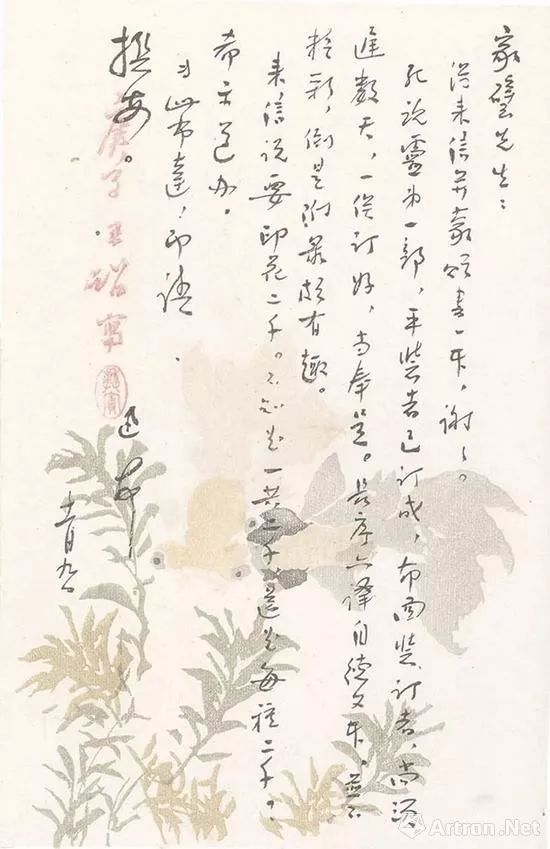 家璧先生：
得来信并蒙颂书一本，谢谢。
死魂灵第一部，平装者已订成，布面装订者，尚须
迟数天，一俟订好，当奉呈。长序亦译自德文本，并不
精彩，倒是附录颇有趣。
来信说要印花二千。不知是一共二千，还是每种二千：
希示遵办。
专此布达，即请
撰安。
迅 启
十一月九日
庚子
寫
Artron.Net